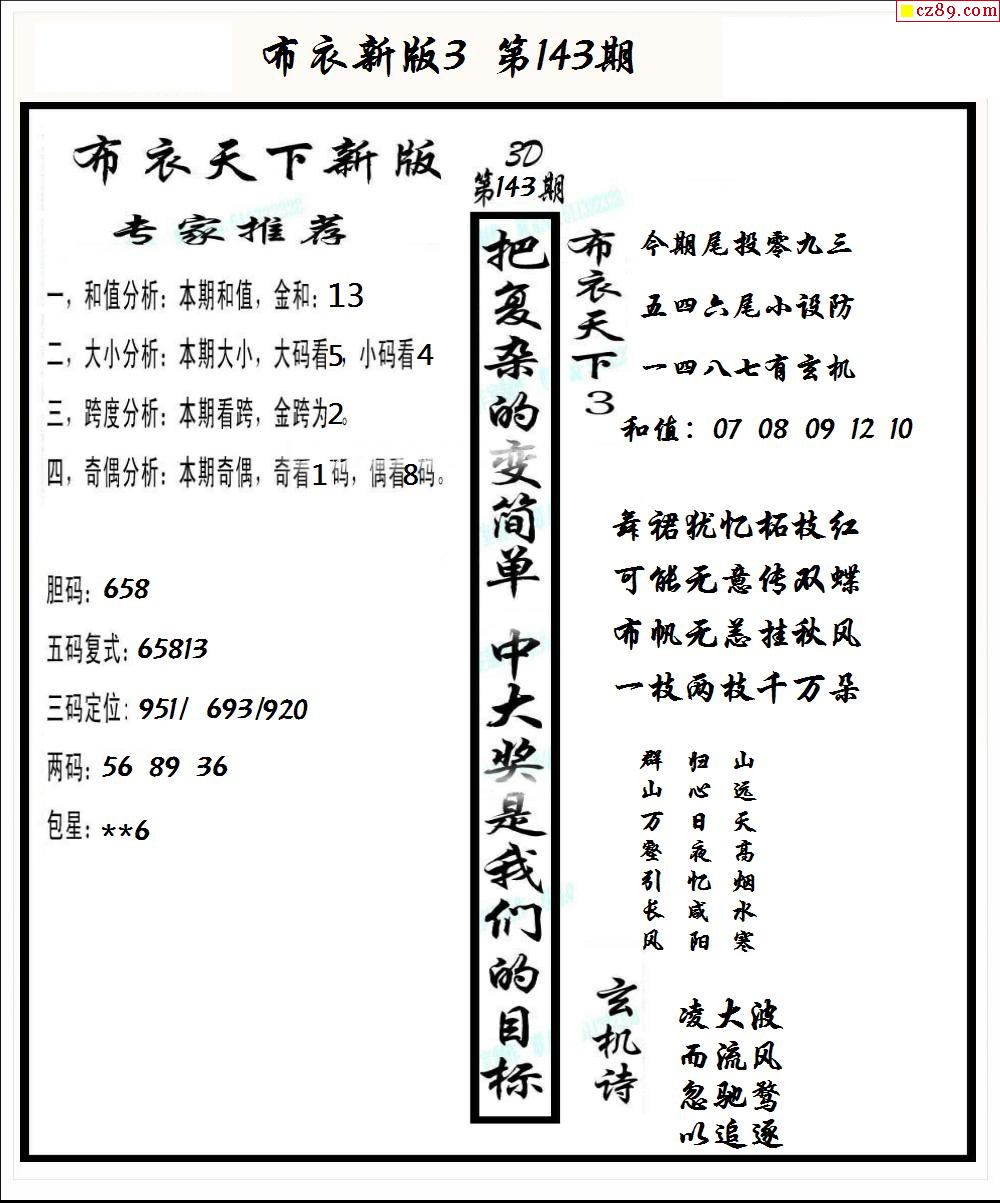 cz89.com
布衣新版3 第143期
布衣天下新版
专家推荐
一，和值分析：本期和值，金和：13
二，大小分析：本期大小，大码看5，小码看4
三，跨度分析：本期看跨，金跨为2。
四，奇偶分析：本期奇偶，奇看1码，偶看8码。
胆码：658
五码复式：65813
三码定位：951/ 693/920
两码：56 89 36
包星：**6
3D
第143期
把复杂的变简单 中大奖是我们的目标
布衣天下3
今期尾投零九三
五四六尾小设防
一四八七有玄机
和值：07 08 09 12 10
舞裙犹忆柘枝红
可能无意传双蝶
布帆无恙挂秋风
一枝两枝千万朵
山远天高烟水寒
归心日夜忆咸阳
群山万壑引长风
玄机诗
凌大波
而流风
忽驰骛
以追逐